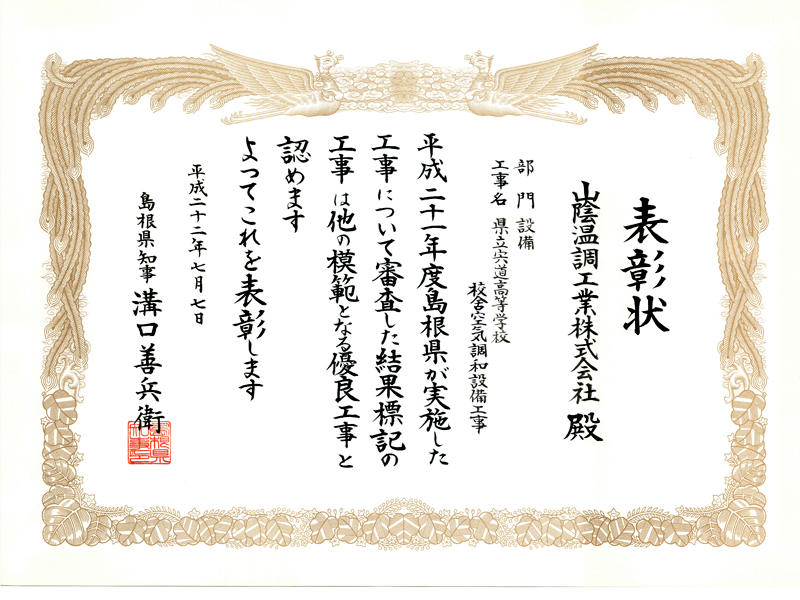 表彰状
山陰温調工業株式会社 殿
部門 設備
工事名 県立宍道高等学校
校舎空気調和設備工事
平成二十一年度島根県が実施した
工事について審査した結果標記の
工事は他の模範となる優良工事と
認めます
よってこれを表彰します
平成二十二年七月七日
島根県知事 溝口善兵衛